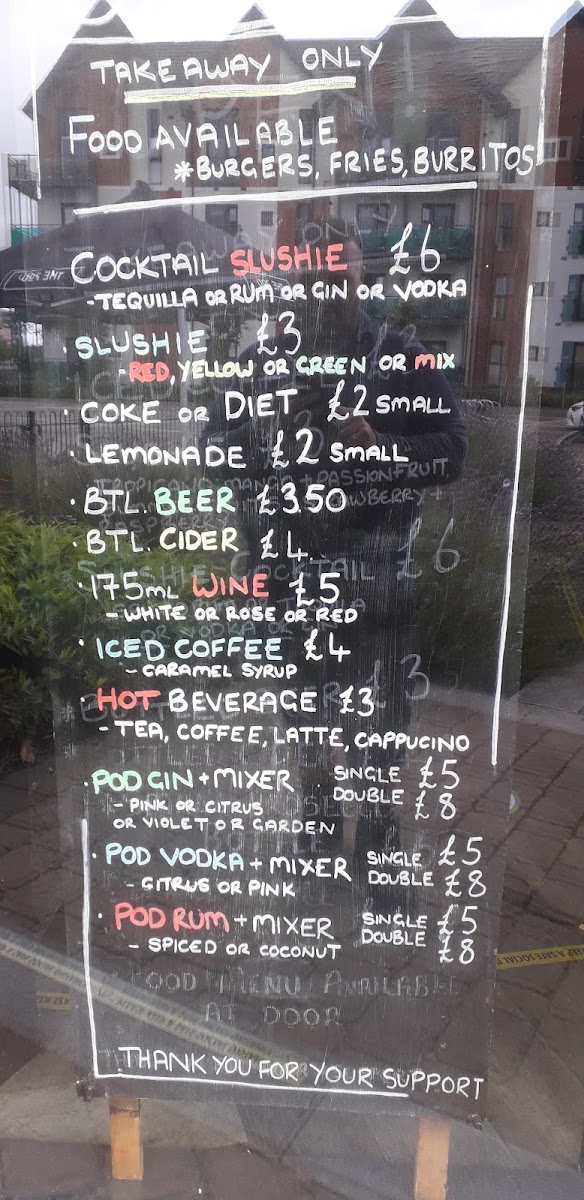 TAKEAWAY ONLY
FOOD AVAILABLE
*BURGERS, FRIES, BURRITOS
COCKTAIL SLUSHIE £6
-TEQUILLA OR RUM OR GIN OR VODKA
· SLUSHIE £3
-RED, YELLOW OR GREEN OR MIX
· COKE OR DIET £2 SMALL
· LEMONADE £2 SMALL
· BTL. BEER £3.50
· BTL. CIDER £4
· 175ML WINE £5
- WHITE OR ROSE OR RED
· ICED COFFEE £4
- CARAMEL SYRUP
· HOT BEVERAGE £3
- TEA, COFFEE, LATTE, CAPPUCINO
· POD GIN + MIXER SINGLE £5
DOUBLE £8
- PINK OR CITRUS
OR VIOLET OR GARDEN
· POD VODKA + MIXER SINGLE £5
DOUBLE £8
- CITRUS OR PINK
· POD RUM + MIXER SINGLE £5
DOUBLE £8
- SPICED OR COCONUT
FOOD MENU AVAILABLE
AT DOOR
THANK YOU FOR YOUR SUPPORT